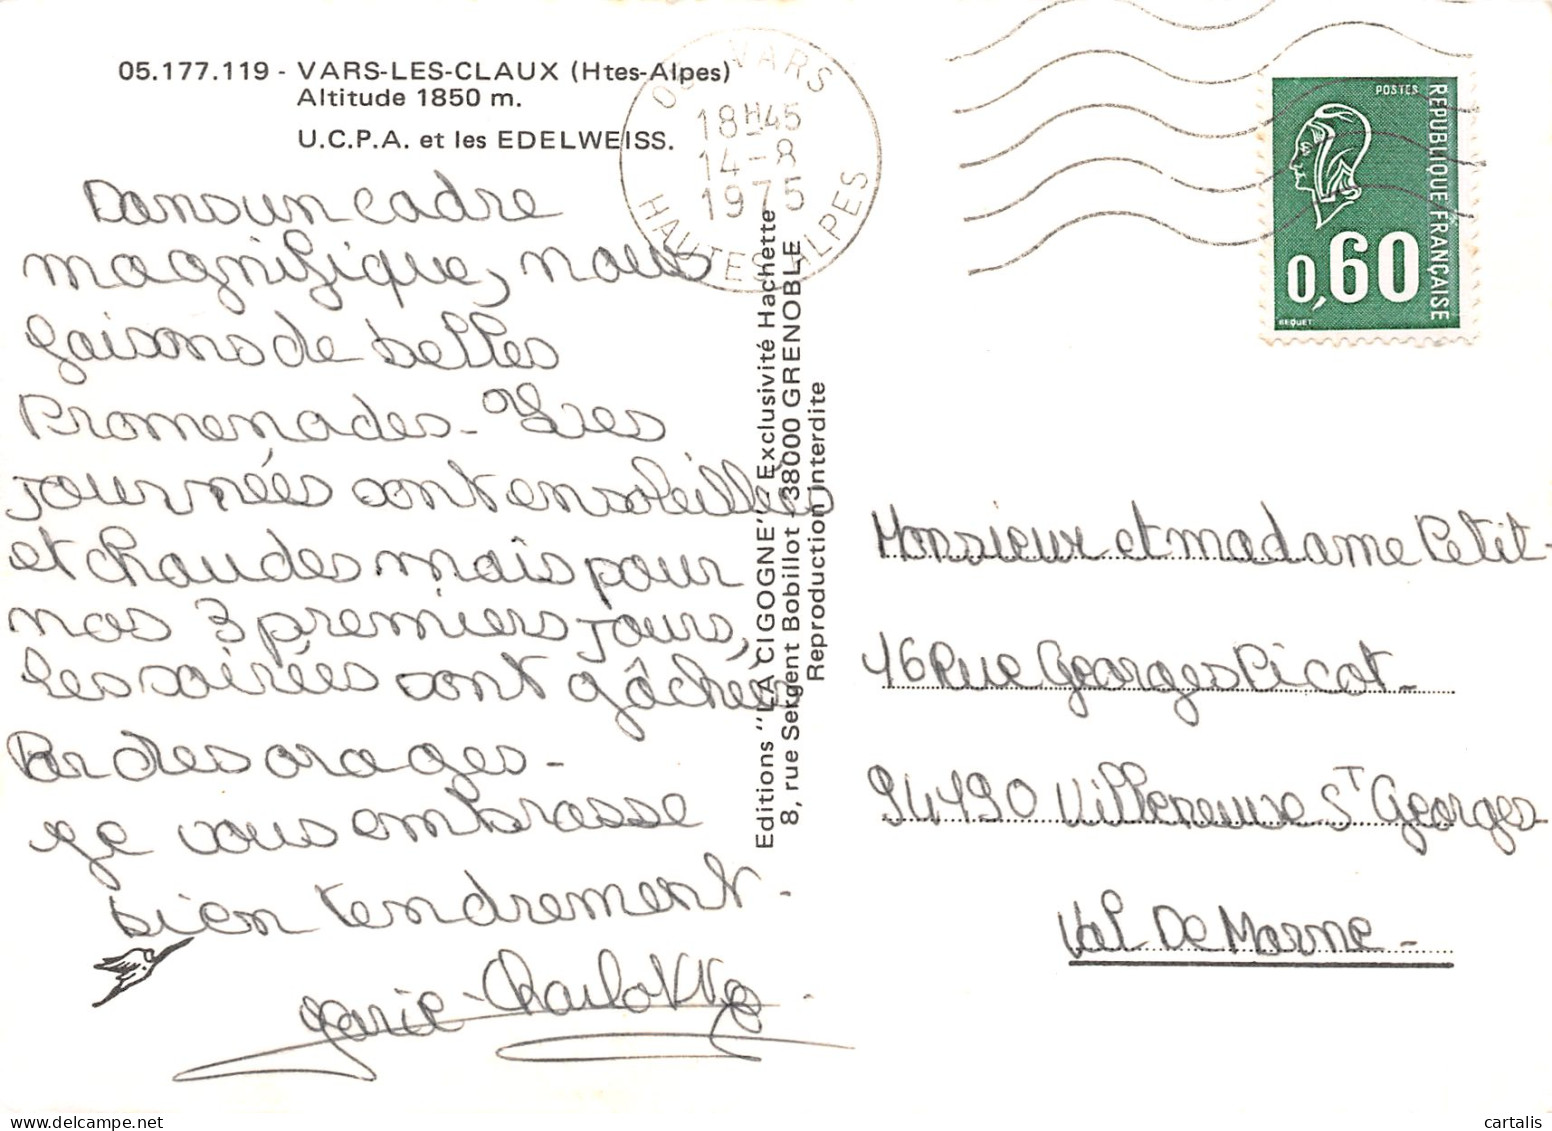 05.177.119 - VARS-LES-CLAUX (Htes-Alpes)
Altitude 1850 m.
U.C.P.A. et les EDELWEISS.
Dans un cadre
magnifique, nous
faisons de belles
Promenades - Les
journées sont ensoleillées
et chaudes mais pour
nos 3 premiers jours,
les soirées sont gâchées
Par des orages -
Je vous embrasse
bien tendrement -
Marie-Charlotte.
Editions "LA CIGOGNE" Exclusivité Hachette
8, rue Sergent Bobillot - 38000 GRENOBLE
Reproduction Interdite
05 VARS
18H45
14-8
1975
HAUTES ALPES
POSTES
REPUBLIQUE FRANÇAISE
0,60
BEQUET
Monsieur et madame Petit -
46 Rue Georges Picot -
94490 Villeneuve St Georges -
Val De Marne -
cartalis